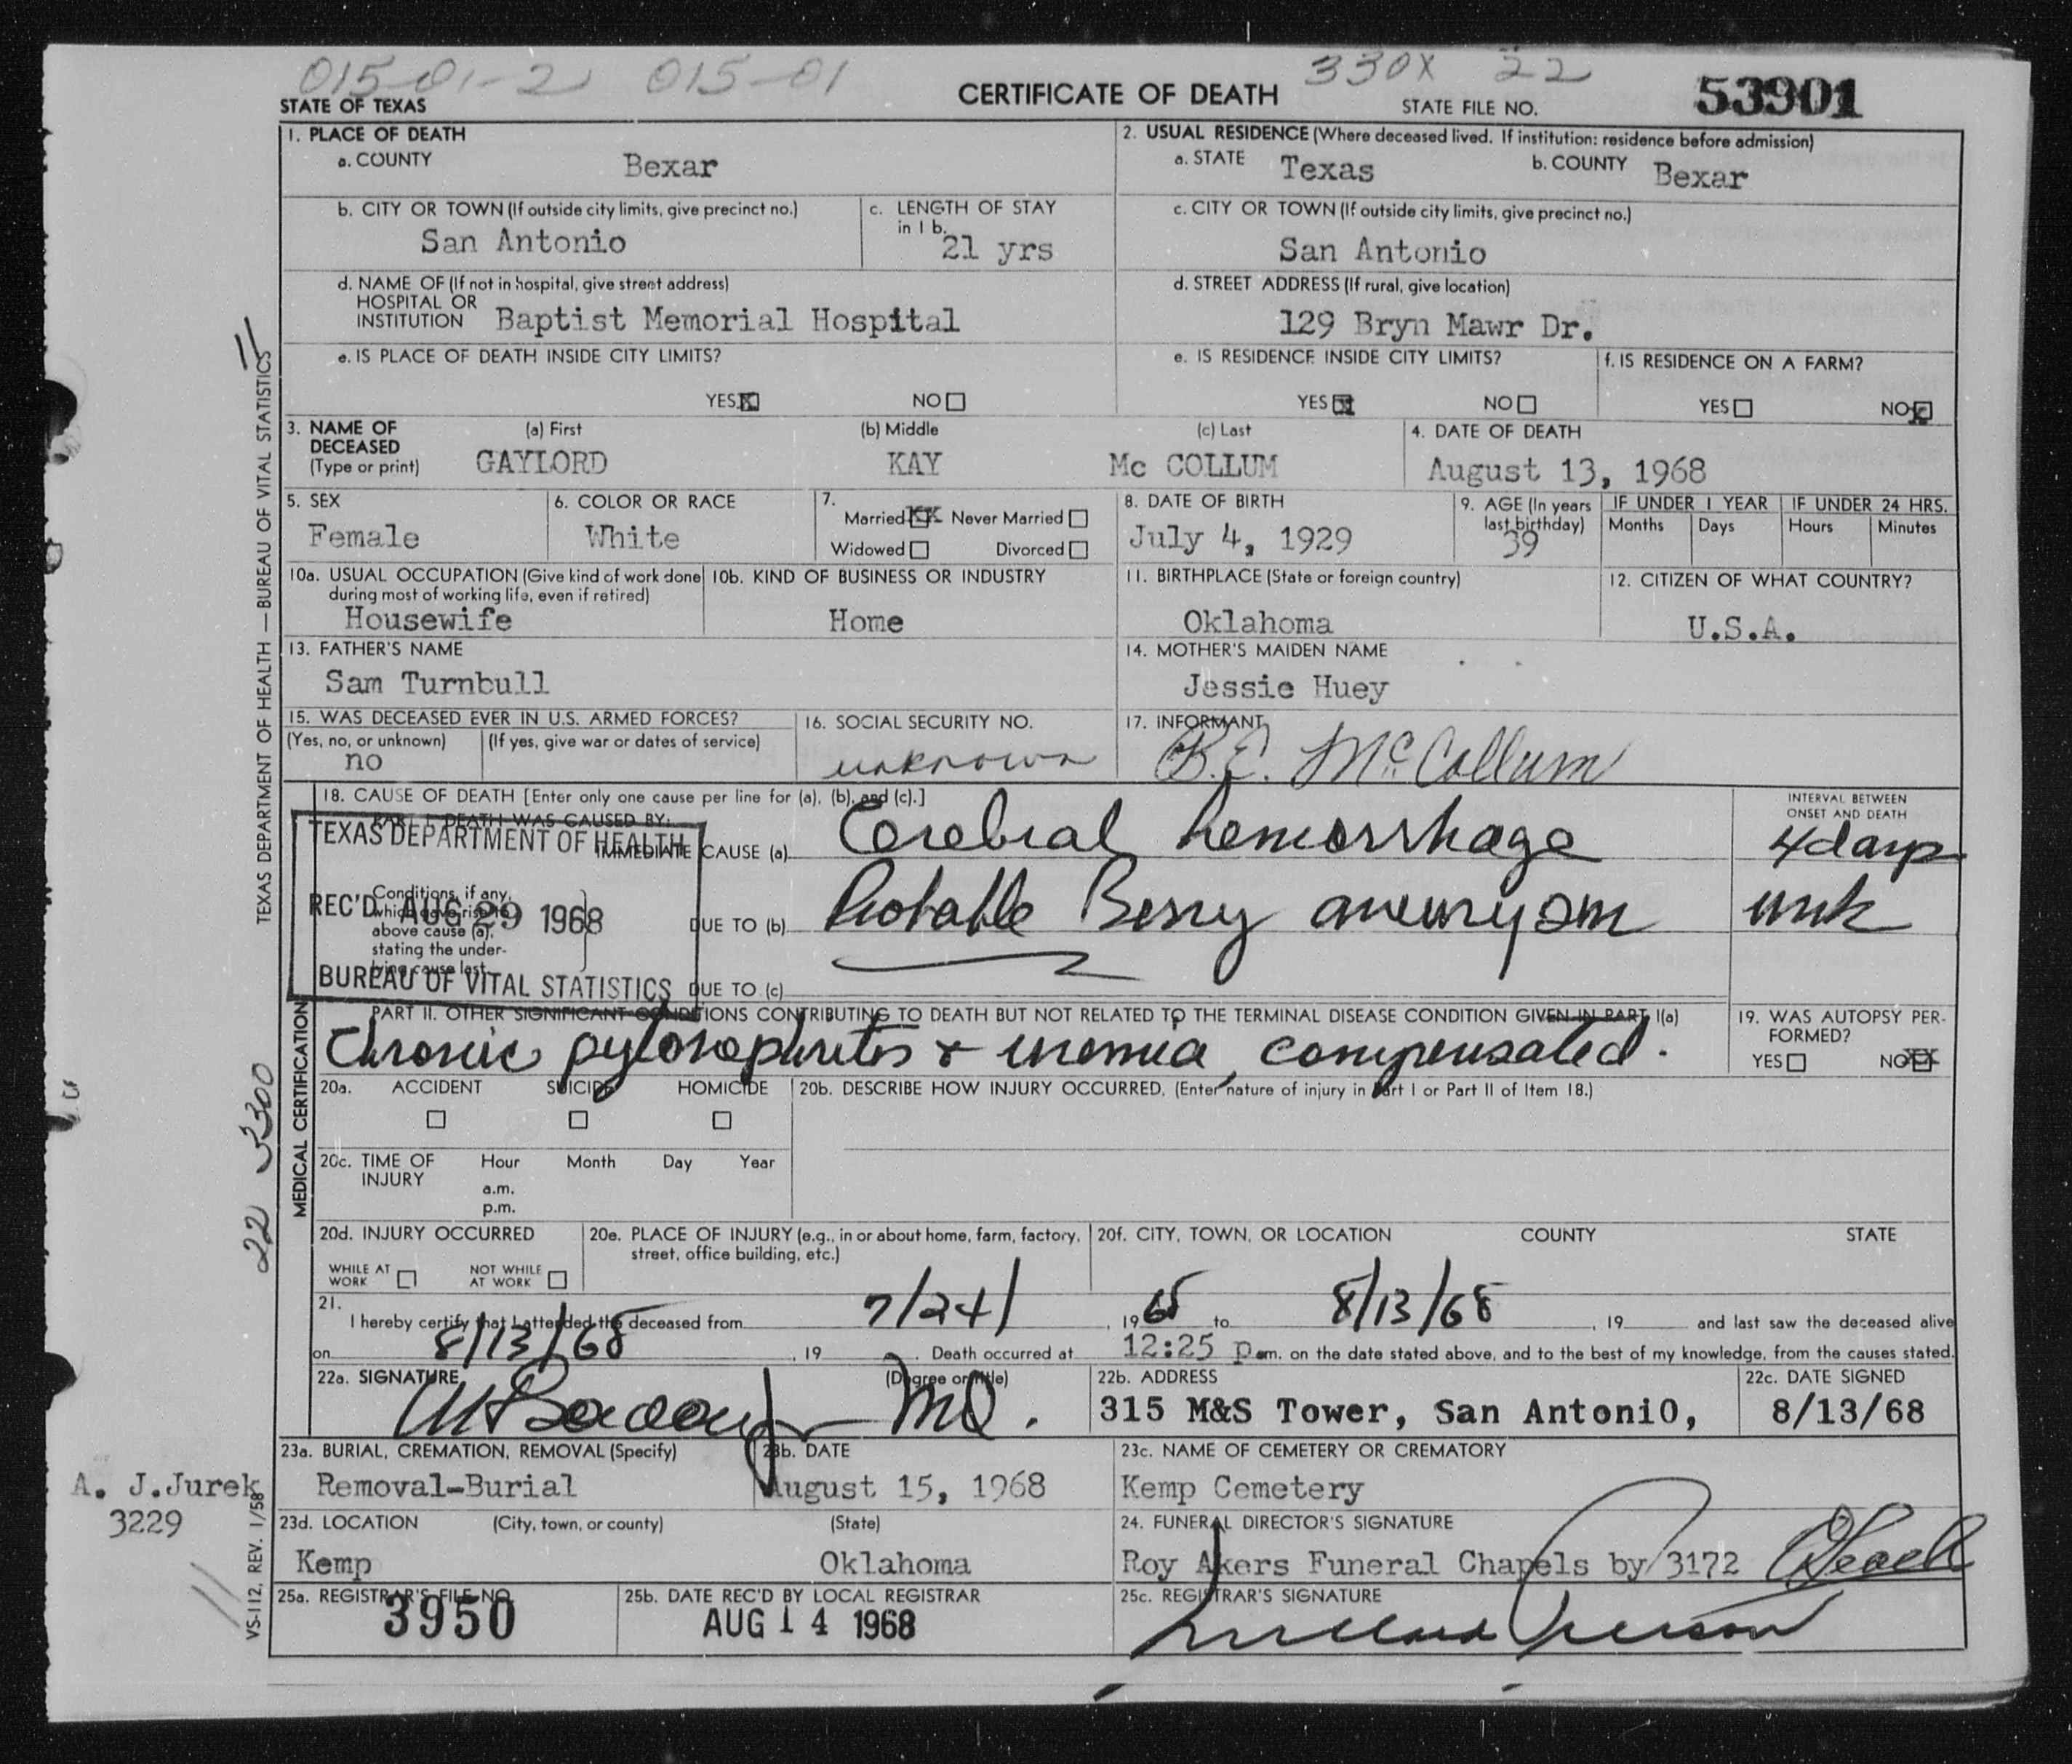 015-01-2 015-01 330X 22
STATE OF TEXAS CERTIFICATE OF DEATH STATE FILE NO. 53901
1. PLACE OF DEATH
a. COUNTY Bexar
2. USUAL RESIDENCE (Where deceased lived. If institution: residence before admission)
a. STATE Texas b. COUNTY Bexar
b. CITY OR TOWN (If outside city limits, give precinct no.)
San Antonio
c. LENGTH OF STAY
in 1 b.
21 yrs
c. CITY OR TOWN (If outside city limits, give precinct no.)
San Antonio
d. NAME OF (If not in hospital, give street address)
HOSPITAL OR
INSTITUTION Baptist Memorial Hospital
d. STREET ADDRESS (If rural, give location)
129 Bryn Mawr Dr.
e. IS PLACE OF DEATH INSIDE CITY LIMITS?
YES X NO
e. IS RESIDENCE INSIDE CITY LIMITS?
YES X NO
f. IS RESIDENCE ON A FARM?
YES NO X
3. NAME OF
DECEASED
(Type or print)
(a) First (b) Middle (c) Last
GAYLORD KAY Mc COLLUM
4. DATE OF DEATH
August 13, 1968
5. SEX
Female
6. COLOR OR RACE
White
7.
Married XX Never Married
Widowed Divorced
8. DATE OF BIRTH
July 4, 1929
9. AGE (In years
last birthday)
39
IF UNDER 1 YEAR IF UNDER 24 HRS.
Months Days Hours Minutes
10a. USUAL OCCUPATION (Give kind of work done
during most of working life, even if retired)
Housewife
10b. KIND OF BUSINESS OR INDUSTRY
Home
11. BIRTHPLACE (State or foreign country)
Oklahoma
12. CITIZEN OF WHAT COUNTRY?
U.S.A.
13. FATHER'S NAME
Sam Turnbull
14. MOTHER'S MAIDEN NAME
Jessie Huey
15. WAS DECEASED EVER IN U.S. ARMED FORCES?
(Yes, no, or unknown) (If yes, give war or dates of service)
no
16. SOCIAL SECURITY NO.
unknown
17. INFORMANT
B.E. McCollum
18. CAUSE OF DEATH [Enter only one cause per line for (a), (b), and (c).]
PART I. DEATH WAS CAUSED BY:
IMMEDIATE CAUSE (a) Cerebral hemorrhage
INTERVAL BETWEEN
ONSET AND DEATH
4 days
Conditions, if any,
which gave rise to
above cause (a),
stating the under-
lying cause last.
DUE TO (b) Probable Berry aneurysm unk
DUE TO (c)
TEXAS DEPARTMENT OF HEALTH
REC'D AUG 29 1968
BUREAU OF VITAL STATISTICS
PART II. OTHER SIGNIFICANT CONDITIONS CONTRIBUTING TO DEATH BUT NOT RELATED TO THE TERMINAL DISEASE CONDITION GIVEN IN PART I(a)
Chronic pyelonephritis & uremia, compensated.
19. WAS AUTOPSY PER-
FORMED?
YES NO XX
20a. ACCIDENT SUICIDE HOMICIDE
20b. DESCRIBE HOW INJURY OCCURRED. (Enter nature of injury in Part I or Part II of Item 18.)
20c. TIME OF
INJURY
Hour Month Day Year
a.m.
p.m.
20d. INJURY OCCURRED
WHILE AT
WORK
NOT WHILE
AT WORK
20e. PLACE OF INJURY (e.g., in or about home, farm, factory,
street, office building, etc.)
20f. CITY, TOWN, OR LOCATION COUNTY STATE
21.
I hereby certify that I attended the deceased from 7/24/, 1965 to 8/13/68, 19 and last saw the deceased alive
on 8/13/68, 19 . Death occurred at 12:25 p.m. on the date stated above, and to the best of my knowledge, from the causes stated.
22a. SIGNATURE (Degree or title)
MD.
22b. ADDRESS
315 M&S Tower, San AntoniO,
22c. DATE SIGNED
8/13/68
23a. BURIAL, CREMATION, REMOVAL (Specify)
Removal-Burial
23b. DATE
August 15, 1968
23c. NAME OF CEMETERY OR CREMATORY
Kemp Cemetery
23d. LOCATION (City, town, or county) (State)
Kemp Oklahoma
24. FUNERAL DIRECTOR'S SIGNATURE
Roy Akers Funeral Chapels by 3172
25a. REGISTRAR'S FILE NO.
3950
25b. DATE REC'D BY LOCAL REGISTRAR
AUG 14 1968
25c. REGISTRAR'S SIGNATURE
TEXAS DEPARTMENT OF HEALTH — BUREAU OF VITAL STATISTICS
11
MEDICAL CERTIFICATION
22 3300
A. J.Jurek
3229
11
VS-112, REV. 1/58